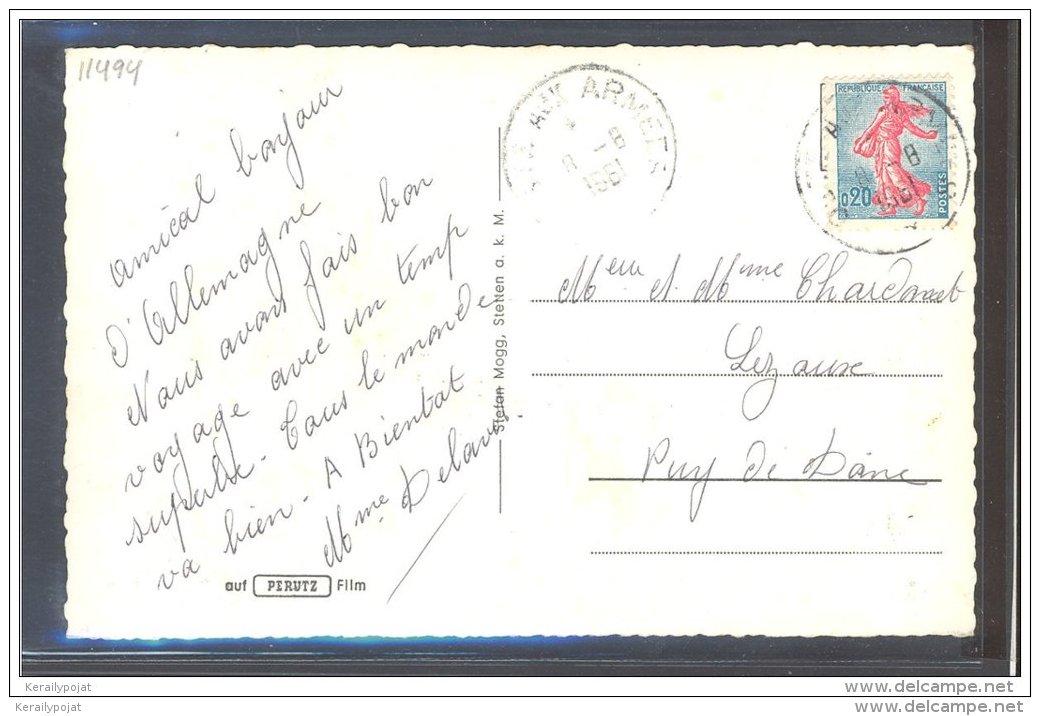 11494
amical bonjour
d'Allemagne
Nous avons fais bon
voyage avec un temp
superbe - Tous le monde
va bien - A Bientot
Mme Delavy
auf PERUTZ Film
Stefan Mogg, Stetten a. k. M.
AUX ARMEES
8 - 8
1961
REPUBLIQUE FRANÇAISE
0,20
POSTES
Meur et Mme Chardonnet
Lezoux
Puy de Dôme
Kerailypojat
Kerailypojat
www.delcampe.net
www.delcampe.net